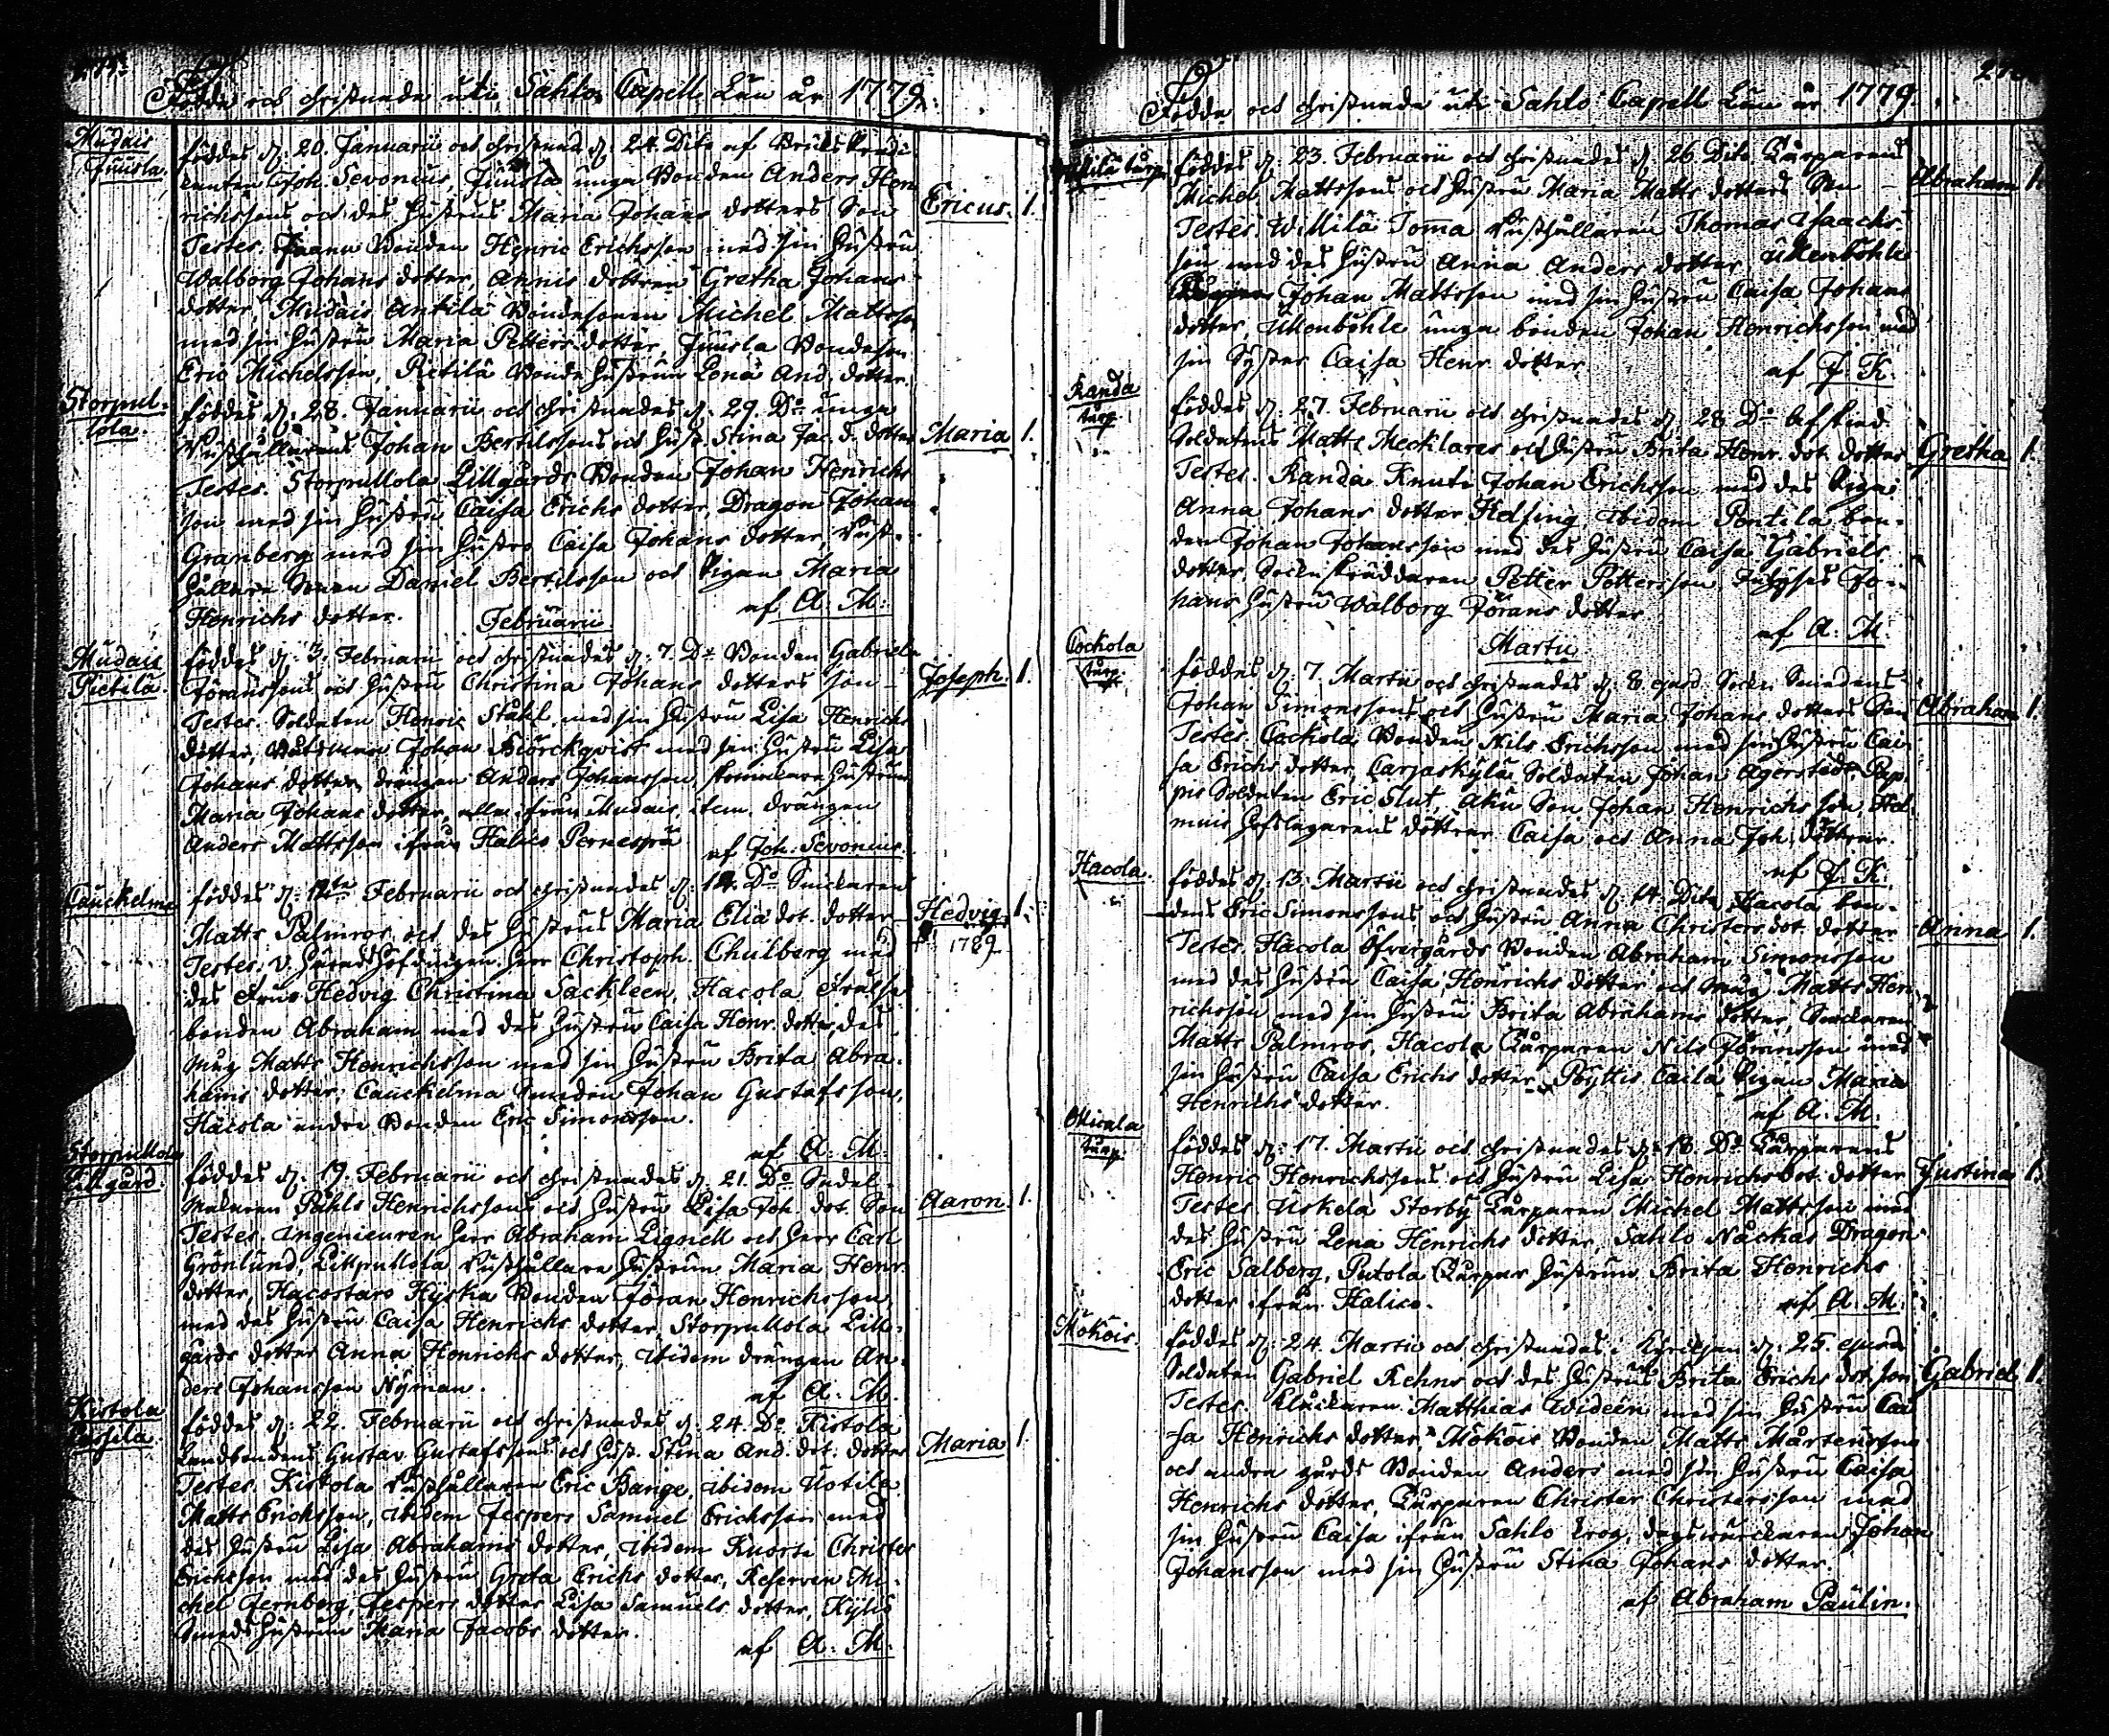 Födde och christnade uti Sahlo Capell Län år 1779.
Mudais
Juusla
föddes d: 20. Januarii och christnad d: 24. Dito af Prædi
canten Joh. Sevonius, Juusla unga Bonden Anders Hen
richssons och des hustrus Maria Johans dotters Son
Ericus. 1.
Testes. Jaanu Bonden Henric Erichsson med sin hustru
Walborg Johans dotter, Annis dottren Gretha Johans
dotter, Mudais Antila Bondesonen Michel Mattsson
med sin hustru Maria Petters dotter, Juusla Bondeson
Eric Michelsson, Pietilä Bonde hustrun Lena And. dotter.
Storpul-
lola.
föddes d: 28. Januarii och christnades d: 29. Do unga
Rusthållarens Johan Bertilssons och hust. Stina Jac. d. dotter
Maria 1.
Testes. Storpullola Lillgårds Bonden Johan Henrichs
son med sin hustru Caisa Erichs dotter, Dragon Johan
Granberg med sin hustro Caisa Johans dotter, Rust-
hållare Sonen Daniel Bertilsson och Pigan Maria
Henrichs dotter. af A: M:
Februarii
Mudais
Pietilä.
föddes d: 3. Februarii och christnades d: 7. Do Bonden Gabriel
Jöranssons och hustru Christina Johans dotters son
Joseph. 1.
Testes. Soldaten Henric Ståhl med sin hustru Lisa Henrichs
dotter, Båtsman Johan Biörckqvist med sin hustru Lisa
Johans dotter, drängen Anders Johansson, skomakare hustrun
Maria Johans dotter, alla ifrån Mudais, item drängen
Anders Mattsson ifrån Halico Pernespää
af Joh. Sevonius.
Cauckelma
föddes d: 12te Februarii och christnades d: 14. Do Snickaren
Matts Palmros och des hustrus Maria Elia dot. dotter
Hedvig 1.
1789
Testes. V. Häradshöfdingen herr Christoph. Chulberg med
des Fru Hedvig Christina Sackleen, Hacola Frälse
bonden Abraham med des hustru Caisa Henr. dotter, des
måg Matts Henrichsson med sin hustru Brita Abra-
hams dotter, Cauckelma Smeden Johan Gustafsson,
Hacola andre Bonden Eric Simonsson.
af A: M:
Storpullola
Lillgård.
föddes d: 19. Februarii och christnades d: 21. Do Sadel-
makaren Påhls Henrichssons och hustru Lisa Joh. dot. Son
Aaron. 1.
Testes, Ingenieuren herr Abraham Lignell och herr Carl
Grönlund, Lillpullola Rusthållare hustrun Maria Henr.
dotter, Hacostaro Hyska Bonden Jöran Henrichsson,
med des hustru Caisa Henrichs dotter, Storpullola Lill-
gårds dotter Anna Henrichs dotter, ibidem drängen An-
ders Johansson Nyman. af A: M.
Kistola
föddes d: 22. Februarii och christnades d: 24. Do Kistola
Landbondens Gustav Gustafssons och hust. Stina And. dot. dotter
Maria 1.
Testes. Kistola Rusthållaren Eric Bange, ibidem Uotila
Matts Erichsson, ibidem Jespers Samuel Erichsson med
des hustru Lisa Abrahams dotter, ibidem Knorte Christer
Erichsson med des hustru Greta Erichs dotter, Reserven Mi-
chel Fernberg, Jespers dotter Lisa Samuels dotter, Kylis
Smeds hustrun Maria Jacobs dotter.
af A: M:
Födda och christnade uti Sahlo Capell Län år 1779
föddes d: 23. Februarii och christnades d: 26. Dito Torparens
Michel Mattssons och hustru Maria Matts dotters Son
Abraham 1.
Testes. Willilä Toma Rusthållaren Thomas Isaachs-
son med des hustru Anna Anders dotter, Ukenböhle
Johan Mattsson med sin hustru Caisa Johans
dotter, Ukenböhle unga bonden Johan Henrichsson med
sin Syster Caisa Henr. dotter.
af J. K.
Kanda
torp
föddes d: 27. Februarii och christnades d: 28 Do Afsked
Soldatens Matts Mecklares och hustru Brita Henr. dot. dotter
Gretha 1.
Testes. Kanda Knuti Johan Erichsson med des Piga
Anna Johans dotter Helsing, ibidem Pentilä bon-
den Johan Johansson med des hustru Caisa Gabriels
dotter, Sockn skräddaren Petter Pettersson, Jo-
hans hustru Walborg Jörans dotter
af A: M.
Martii
Cockola
torp.
föddes d: 7. Martii och christnades d: 8. ejusd. Sockn Smedens
Johan Simonssons och hustru Maria Johans dotters Son
Abraham 1.
Testes. Cockola Bonden Nils Erichsson med sin hustru Cai-
sa Erichs dotter, Carjaskylä Soldaten Johan Agerstedt, Pap-
pis Soldaten Eric Slut, Aku Son Johan Henrichsson, Hal
mus hofslagarens döttrar Caisa och Anna Joh. döttrar.
af J. K.
Hacola.
föddes d: 13. Martii och christnades d: 14. Dito, Hacola bon-
dens Eric Simonssons och hustru Anna Christers dot. dotter
Anna 1.
Testes. Hacola Öfvergårds Bonden Abraham Simonsson
med des hustru Caisa Henrichs dotter och måg Matts Hen
richsson med sin hustru Brita Abrahams dotter, Snickaren
Matts Palmros, Hacola Torparen Nils Jöransson med
sin hustru Caisa Erichs dotter, Pöyttis Caila Pigan Maria
Henrichs dotter. af A. M.
torp.
föddes d: 17. Martii och christnades d: 18. Do Torparens
Henric Henrichssons och hustru Lisa Henrichs dot. dotter
Justina 1.
Testes Uskela Storby Torparen Michel Mattsson med
des hustru Lena Henrichs dotter, Sahlo Nåckas Dragon
Eric Salberg, Putola Torpar hustrun Brita Henrichs
dotter ifrån Halico. af A. M.
Mökois.
föddes d: 24. Martii och christnades i Kyrckjan d: 25. ejusd.
Soldaten Gabriel Rehns och des hustrus Brita Erichs dot. son
Gabriel 1.
Testes. Klåckaren Matthias Wideen med sin hustru Cai
sa Henrichs dotter, Mökois Bonden Matts Mårtensson
och andra gårds Bonden Anders med sin hustru Caisa
Henrichs dotter, Torparen Christer Christersson med
sin hustru Caisa ifrån Sahlo krog, dagswärckaren Johan
Johansson med sin hustru Stina Johans dotter.
af Abraham Paulin.